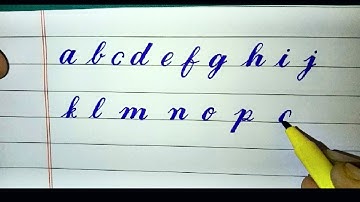 a b c d e f g h i j
k l m n o p